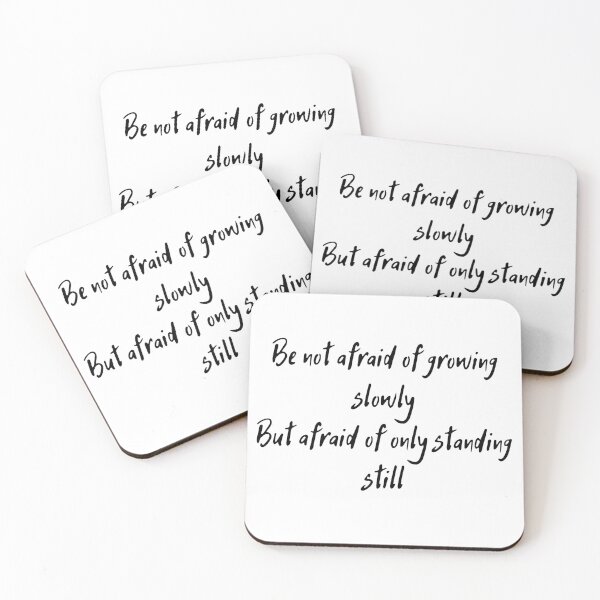 Be not afraid of growing
slowly
Be not afraid of growing
slowly
But afraid of only standing
Be not afraid of growing
slowly
But afraid of only standing
still
Be not afraid of growing
slowly
But afraid of only standing
still